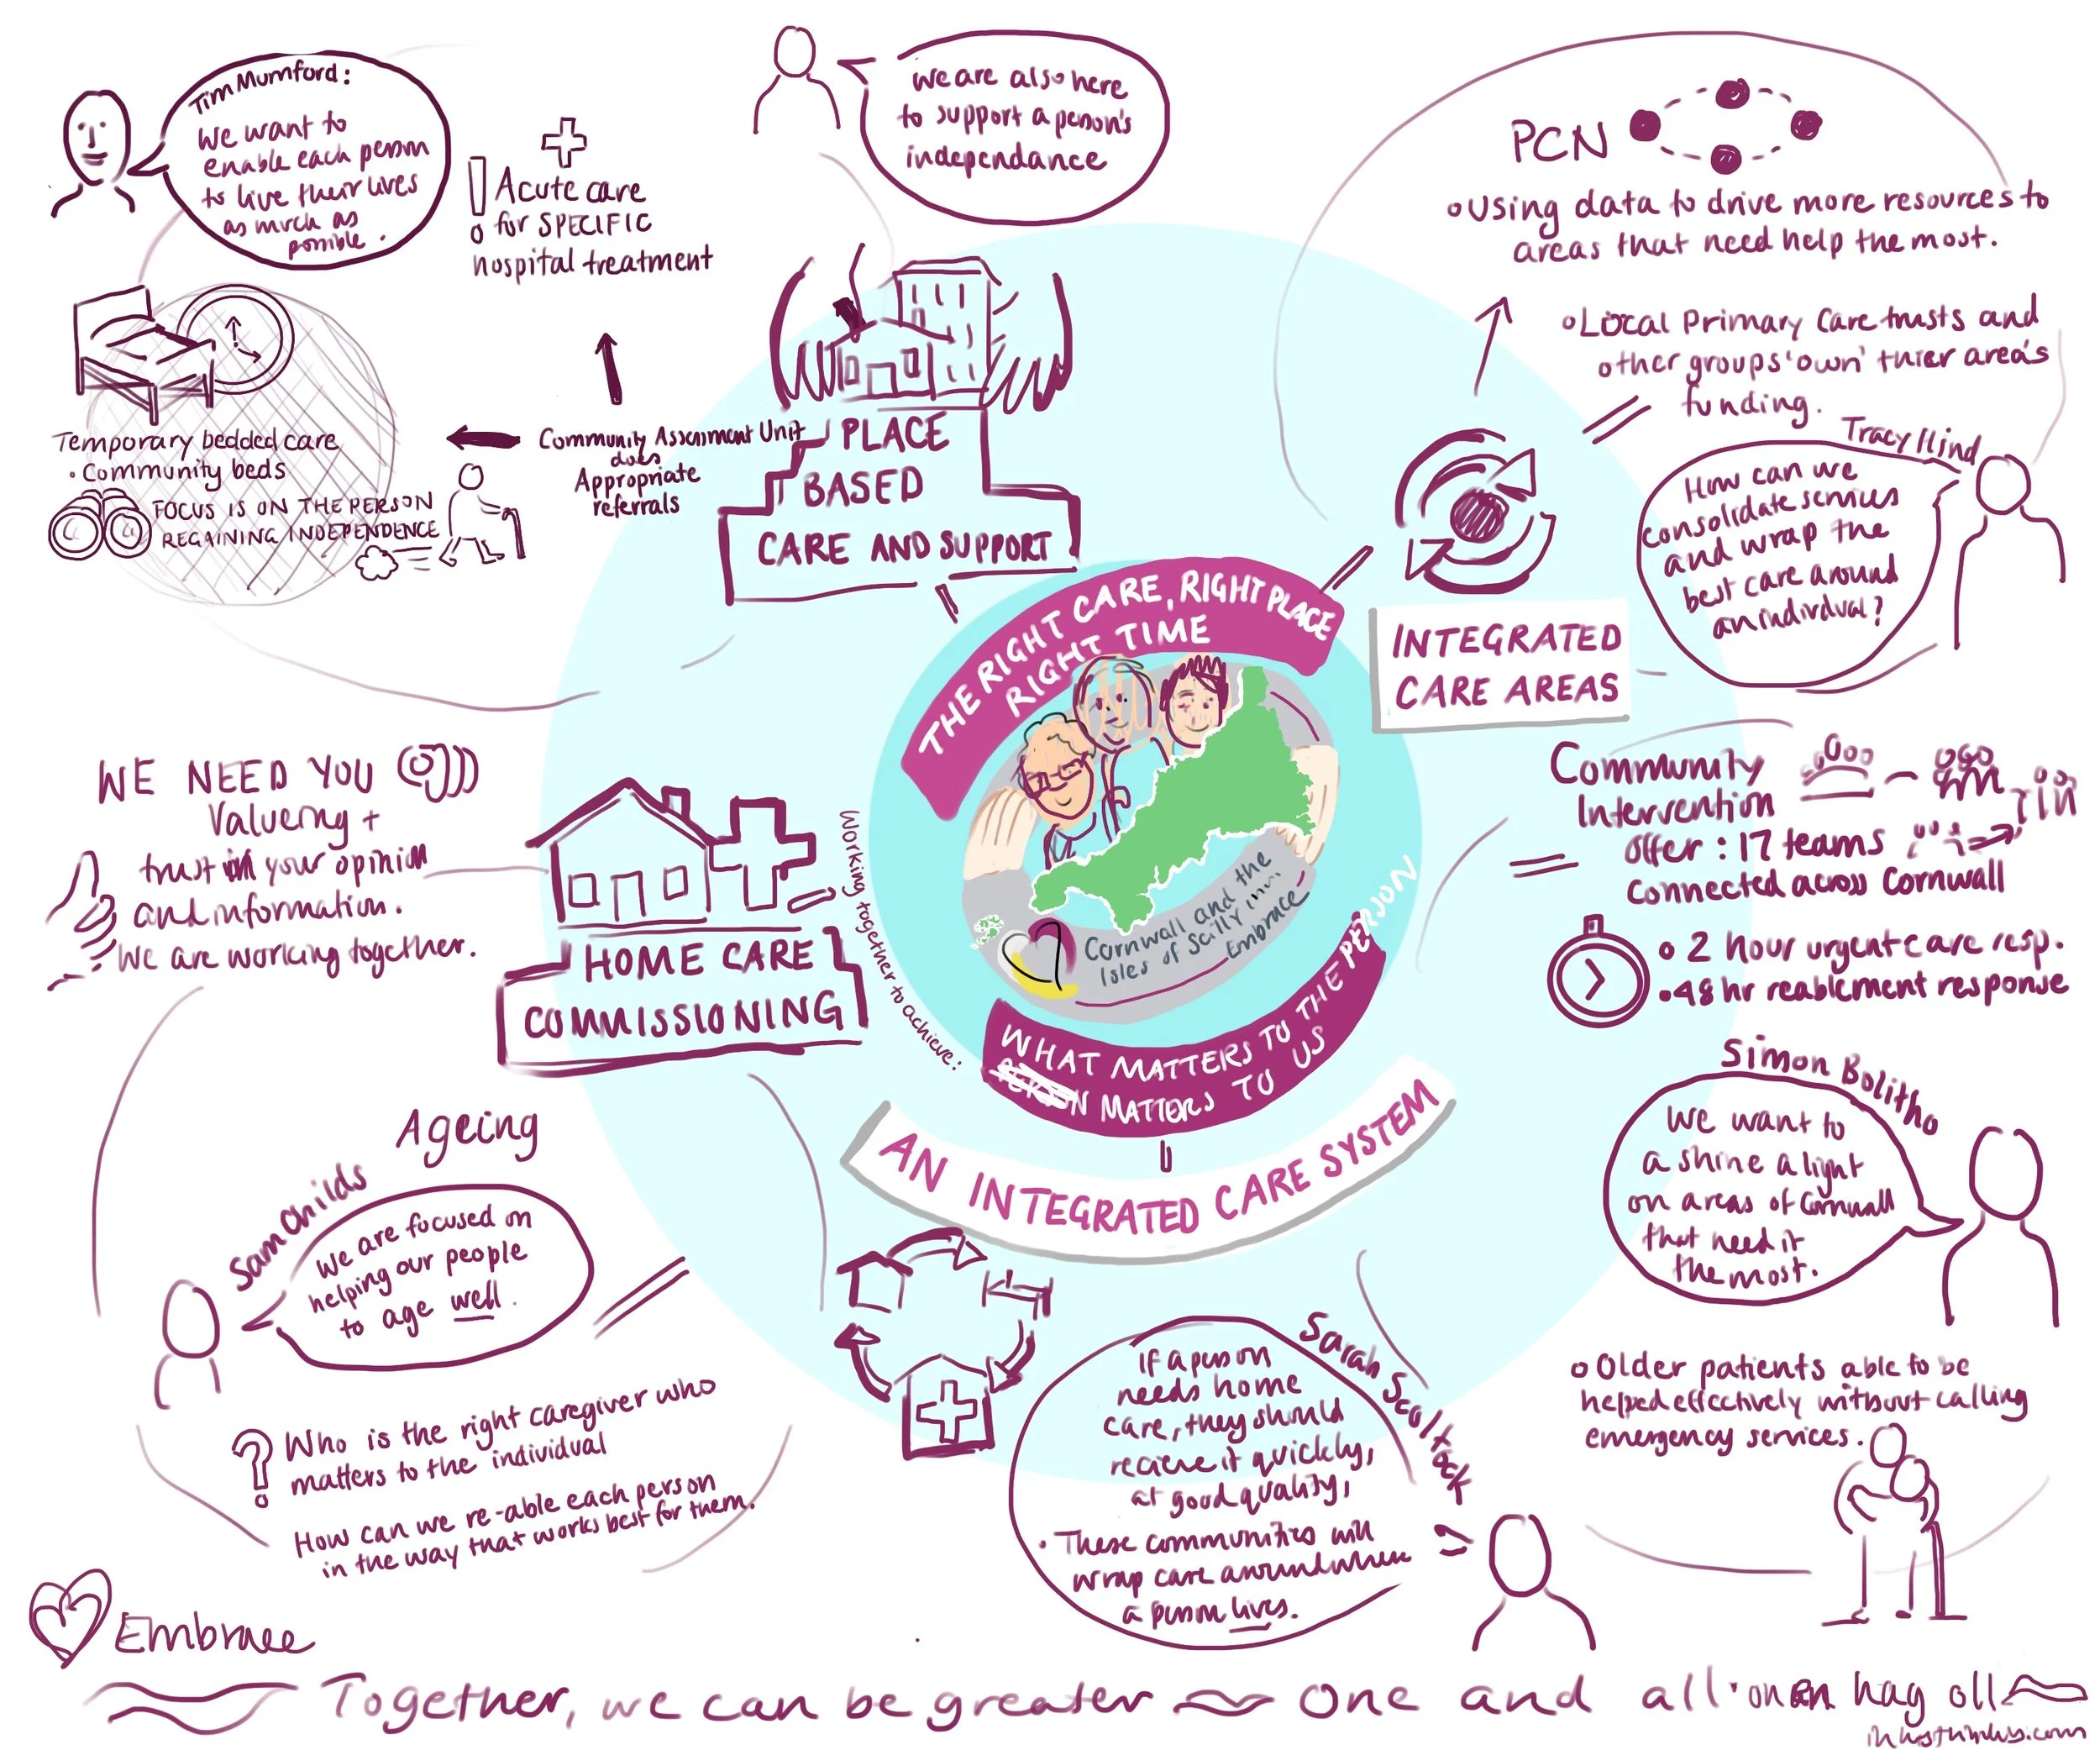 Tim Mumford:
We want to
enable each person
to live their lives
as much as
possible.
Acute care
for SPECIFIC
hospital treatment
We are also here
to support a person's
independance
PCN
Using data to drive more resources to
areas that need help the most.
Local Primary Care trusts and
other groups 'own' thier area's
funding.
Tracy Hind
How can we
consolidate services
and wrap the
best care around
an individual?
Temporary bedded care
• Community beds
FOCUS IS ON THE PERSON
REGAINING INDEPENDENCE
Community Assessment Unit
does
Appropriate
referrals
PLACE
BASED
CARE AND SUPPORT
THE RIGHT CARE, RIGHT PLACE
RIGHT TIME
INTEGRATED
CARE AREAS
WE NEED YOU
Valueing +
trust in your opinion
and information.
We are working together.
HOME CARE
COMMISSIONING
Working together to achieve:
Cornwall and the
Isles of Scilly
Embrace
WHAT MATTERS TO THE PERSON
MATTERS TO US
AN INTEGRATED CARE SYSTEM
Community
Intervention
offer: 17 teams
connected across Cornwall
2 hour urgent care resp.
• 48 hr reablement response
Simon Bolitho
We want to
a shine a light
on areas of Cornwall
that need it
the most.
Older patients able to be
helped effectively without calling
emergency services.
Ageing
Sam Childs
We are focused on
helping our people
to age well.
? Who is the right caregiver who
matters to the individual
How can we re-able each person
in the way that works best for them.
Sarah Scoltock
If a person
needs home
care, they should
recieve it quickly,
at good quality,
• These communities will
wrap care around where
a person lives.
Embrace
Together, we can be greater one and all • onen hag oll